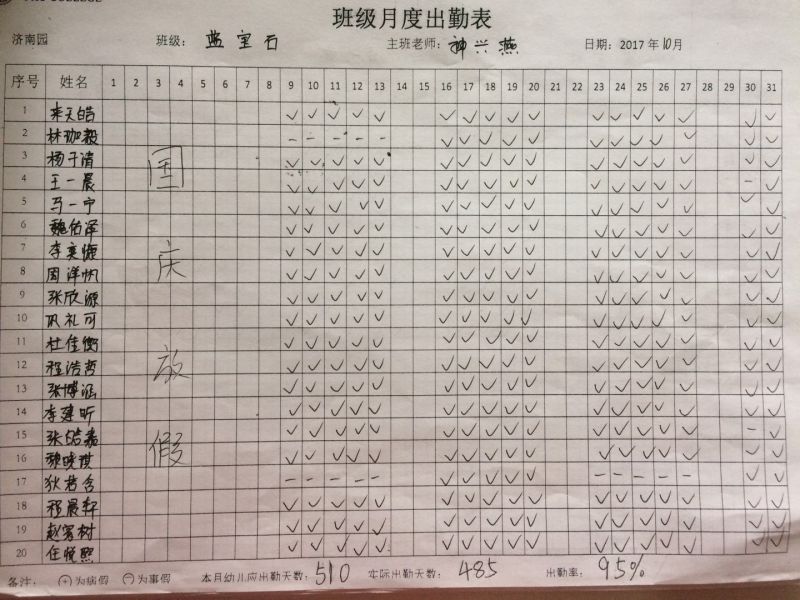 班级月度出勤表
济南园 班级： 蓝宝石 主班老师： 神兴燕 日期：2017年10月
序号 姓名 1 2 3 4 5 6 7 8 9 10 11 12 13 14 15 16 17 18 19 20 21 22 23 24 25 26 27 28 29 30 31
1 来天皓 ✓ ✓ ✓ ✓ ✓ ✓ ✓ ✓ ✓ ✓ ✓ ✓ ✓ ✓ ✓ ✓ ✓
2 林珈毅 – – – – – ✓ ✓ ✓ ✓ ✓ ✓ ✓ ✓ ✓ ✓ ✓ ✓
3 杨子清 国 ✓ ✓ ✓ ✓ ✓ ✓ ✓ ✓ ✓ ✓ ✓ ✓ ✓ ✓ ✓ ✓ ✓
4 王一晨 ✓ ✓ ✓ ✓ ✓ ✓ ✓ ✓ ✓ ✓ ✓ ✓ ✓ ✓ ✓ – ✓
5 马一宁 ✓ ✓ ✓ ✓ ✓ ✓ ✓ ✓ ✓ ✓ ✓ ✓ ✓ ✓ ✓ ✓ ✓
6 魏佑泽 ✓ ✓ ✓ ✓ ✓ ✓ ✓ ✓ ✓ ✓ ✓ ✓ ✓ ✓ ✓ ✓ ✓
7 李奕 庆 ✓ ✓ ✓ ✓ ✓ ✓ ✓ ✓ ✓ ✓ ✓ ✓ ✓ ✓ ✓ ✓ ✓
8 周洋帆 ✓ ✓ ✓ ✓ ✓ ✓ ✓ ✓ ✓ ✓ ✓ ✓ ✓ ✓ ✓ ✓ ✓
9 张欣源 ✓ ✓ ✓ ✓ ✓ ✓ ✓ ✓ ✓ ✓ ✓ ✓ ✓ ✓ ✓ ✓ ✓
10 巩礼可 ✓ ✓ ✓ ✓ ✓ ✓ ✓ ✓ ✓ ✓ ✓ ✓ ✓ ✓ ✓ ✓ ✓
11 杜佳衡 ✓ ✓ ✓ ✓ ✓ ✓ ✓ ✓ ✓ ✓ ✓ ✓ ✓ ✓ ✓ ✓ ✓
12 程浩哲 放 ✓ ✓ ✓ ✓ ✓ ✓ ✓ ✓ ✓ ✓ ✓ ✓ ✓ ✓ ✓ ✓ ✓
13 张博涵 ✓ ✓ ✓ ✓ ✓ ✓ ✓ ✓ ✓ ✓ ✓ ✓ ✓ ✓ ✓ ✓ ✓
14 李建昕 ✓ ✓ ✓ ✓ ✓ ✓ ✓ ✓ ✓ ✓ ✓ ✓ ✓ ✓ ✓ ✓ ✓
15 张皓嘉 ✓ ✓ ✓ ✓ ✓ ✓ ✓ ✓ ✓ ✓ ✓ ✓ ✓ ✓ ✓ – ✓
16 魏晓琪 假 ✓ ✓ ✓ ✓ ✓ ✓ ✓ ✓ ✓ ✓ ✓ ✓ ✓ ✓ ✓ ✓ ✓
17 狄若含 – – – – – ✓ ✓ ✓ ✓ ✓ – – – – – ✓ ✓
18 程晨轩 ✓ ✓ ✓ ✓ ✓ ✓ ✓ ✓ ✓ ✓ ✓ ✓ ✓ ✓ ✓ ✓ ✓
19 赵 树 ✓ ✓ ✓ ✓ ✓ ✓ ✓ ✓ ✓ ✓ ✓ ✓ ✓ ✓ ✓ ✓ ✓
20 任悦熙 ✓ ✓ ✓ ✓ ✓ ✓ ✓ ✓ ✓ ✓ ✓ ✓ ✓ ✓ ✓ ✓ ✓
备注： ⊕为病假 ⊖为事假 本月幼儿应出勤天数：510 实际出勤天数： 485 出勤率： 95%